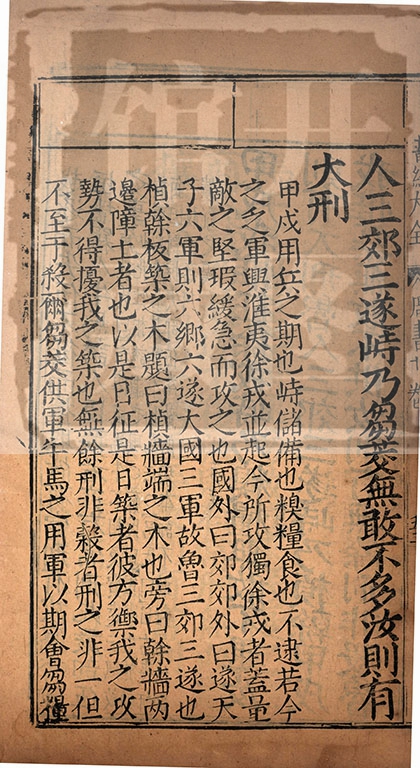 人三郊三遂峙乃芻茭無敢不多汝則有
大刑
甲戌用兵之期也峙儲備也糗糧食也不逮若今
之乏軍興淮夷徐戎並起今所攻獨徐戎者蓋量
敵之堅瑕緩急而攻之也國外曰郊郊外曰遂天
子六軍則六鄉六遂大國三軍故魯三郊三遂也
楨榦板築之木題曰楨牆端之木也旁曰榦牆兩
邊障土者也以是日征是日築者彼方禦我之攻
勢不得擾我之築也無餘刑非殺者刑之非一但
不至于殺爾芻茭供軍牛馬之用軍以期會芻糧